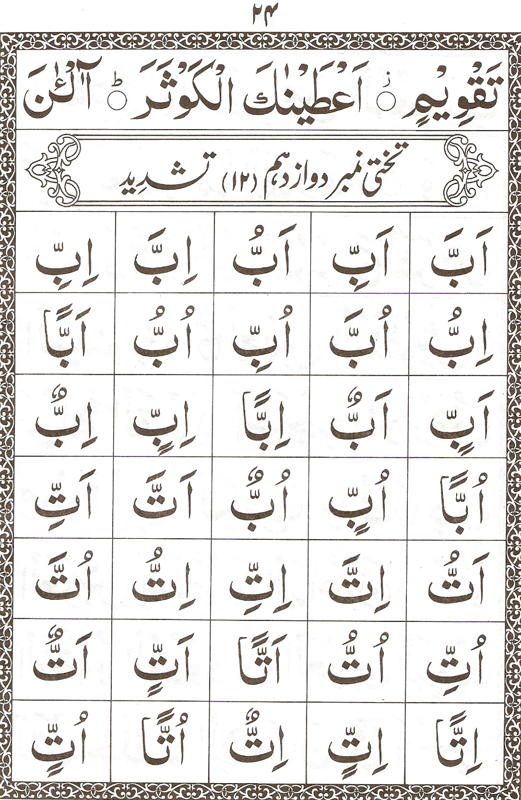 ۲۴
تَقْوِيْمٍ ۙ اَعْطَيْنٰكَ الْكَوْثَرَ ؕ آٰلْـٰٔنَ
تختی نمبر دوازدہم (۱۲) تشدید
اَبَّ اَبِّ اَبُّ اِبَّ اِبِّ
اِبُّ اُبَّ اُبِّ اُبُّ اَبًّا
اَبٍّ اَبٌّ اِبًّا اِبٍّ اِبٌّ
اُبًّا اُبٍّ اُبٌّ اَتَّ اَتِّ
اَتُّ اِتَّ اِتِّ اِتُّ اُتَّ
اُتِّ اُتُّ اَتًّا اَتٍّ اَتٌّ
اِتًّا اِتٍّ اِتٌّ اُتًّا اُتٍّ